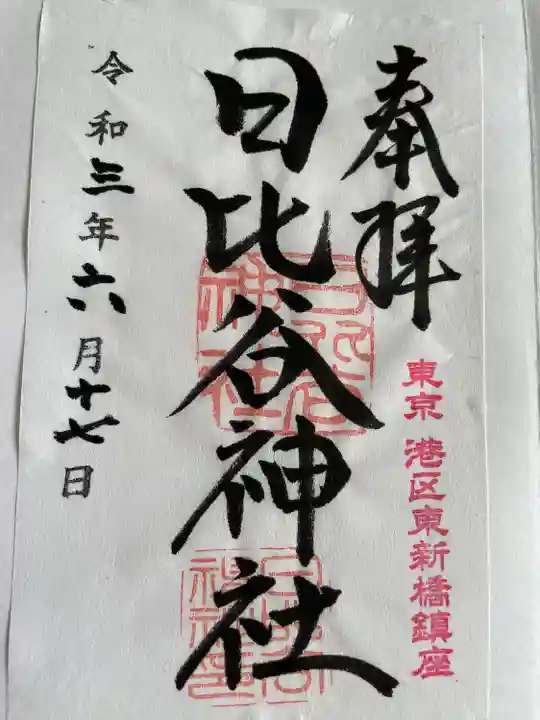 奉拝
東京 港区東新橋鎮座
日比谷神社
日比谷神社
令和三年六月十七日